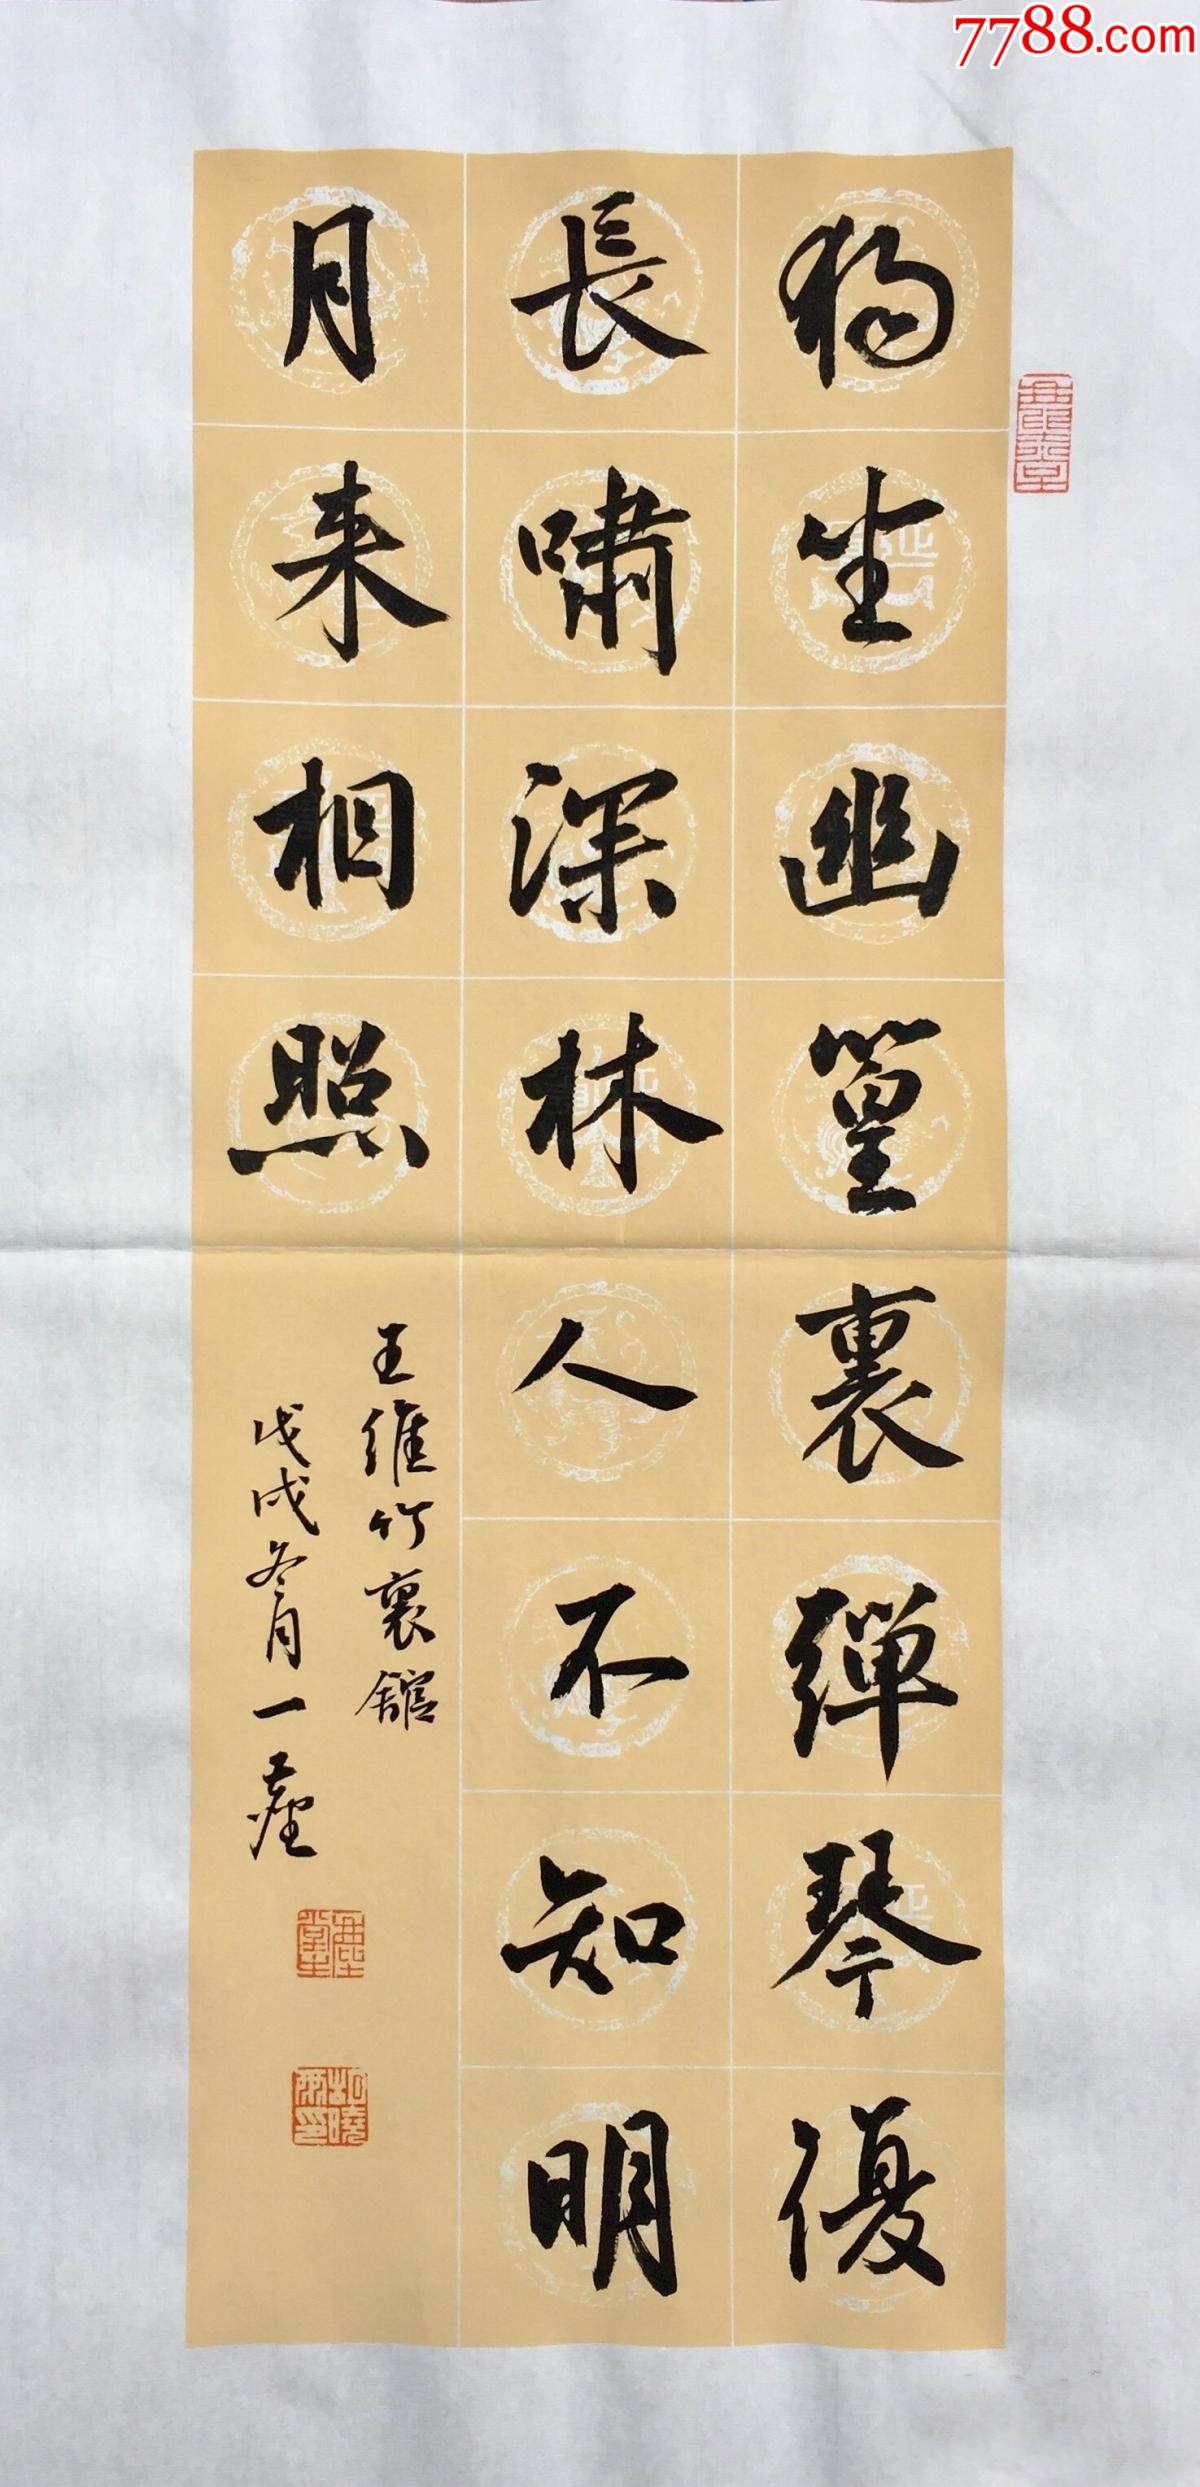 7788.com
獨坐幽篁裏彈琴復
長嘯深林人不知明
月来相照
王維竹裏舘
戊戌冬月一塵